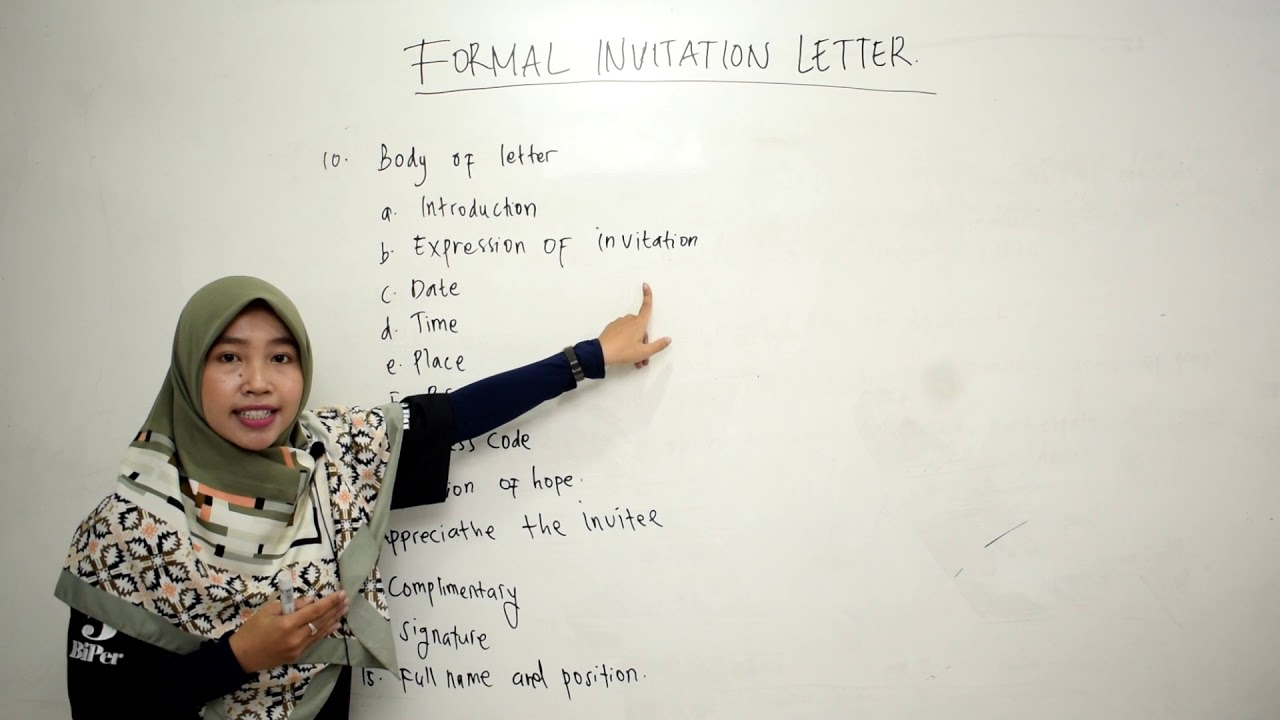 FORMAL INVITATION LETTER.
10. Body of letter
a. Introduction
b. Expression of invitation
c. Date
d. Time
e. Place
code
of hope.
the invitee
Complimentary
signature
15. Full name and position.
BiPer